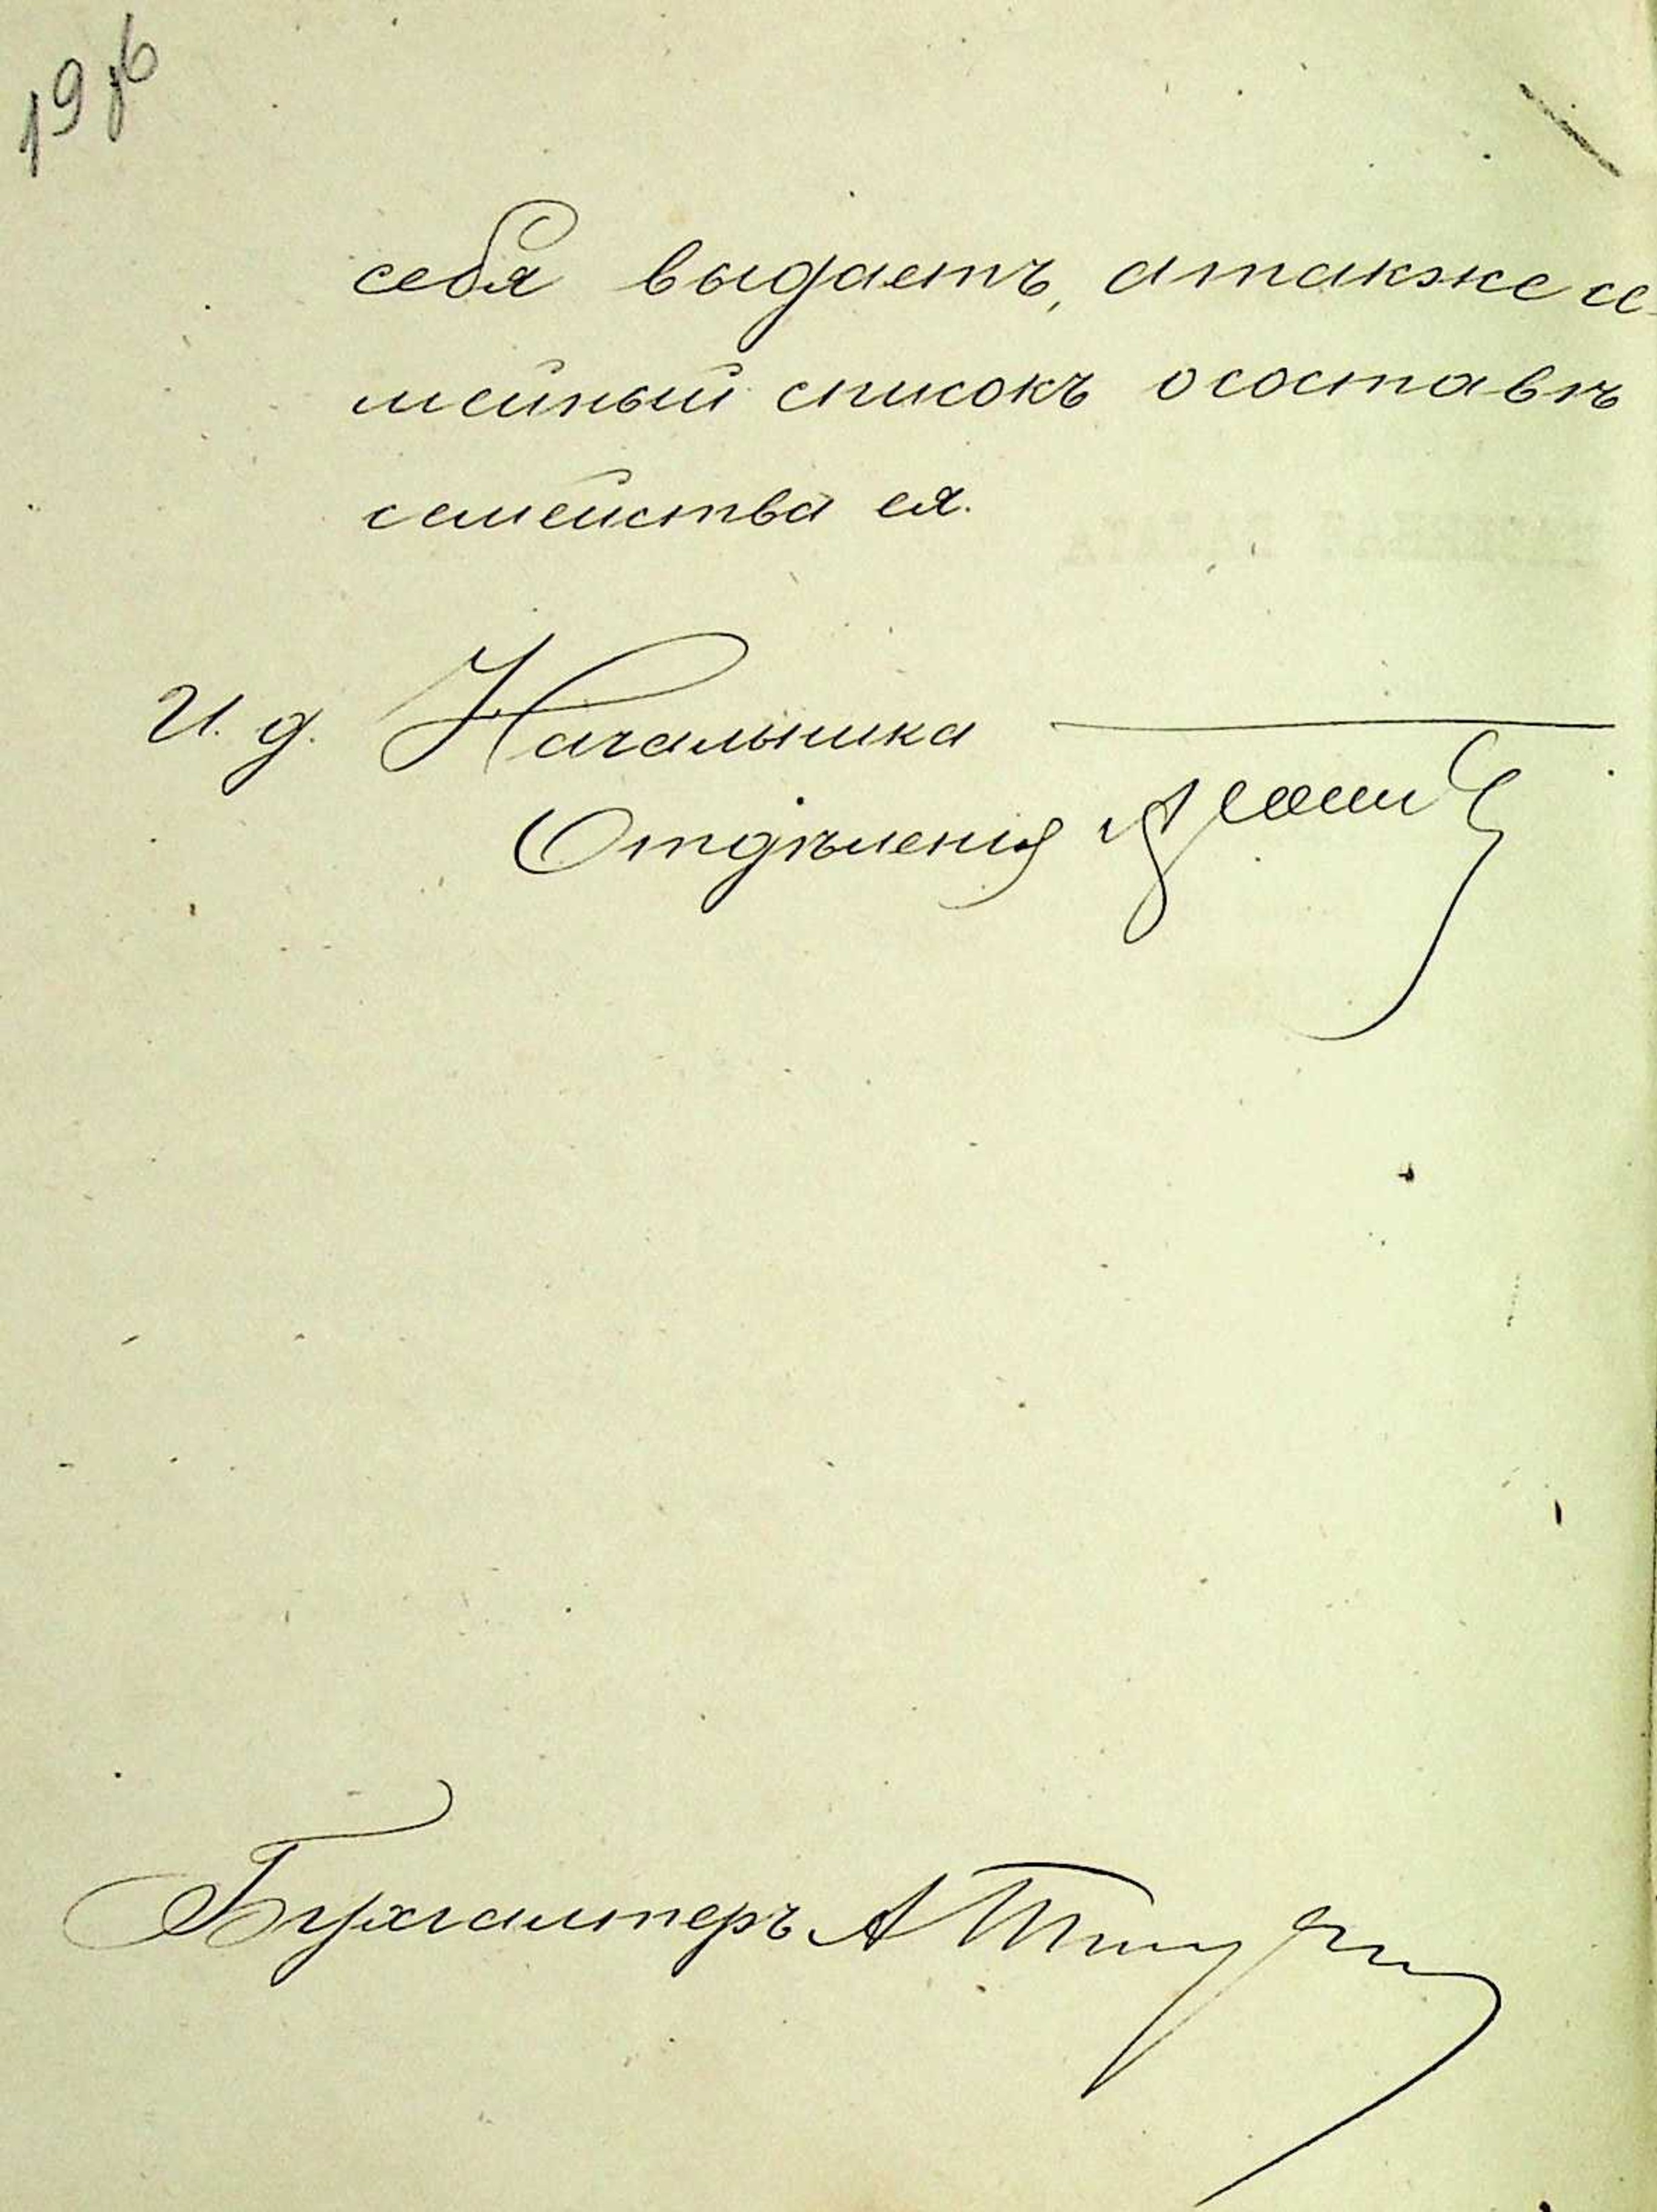 себя выдаетъ, атакже се-
мейный списокъ осоставѣ
семейства ея.
И. д. Начальника
Отдѣленія
Бухгалтеръ А